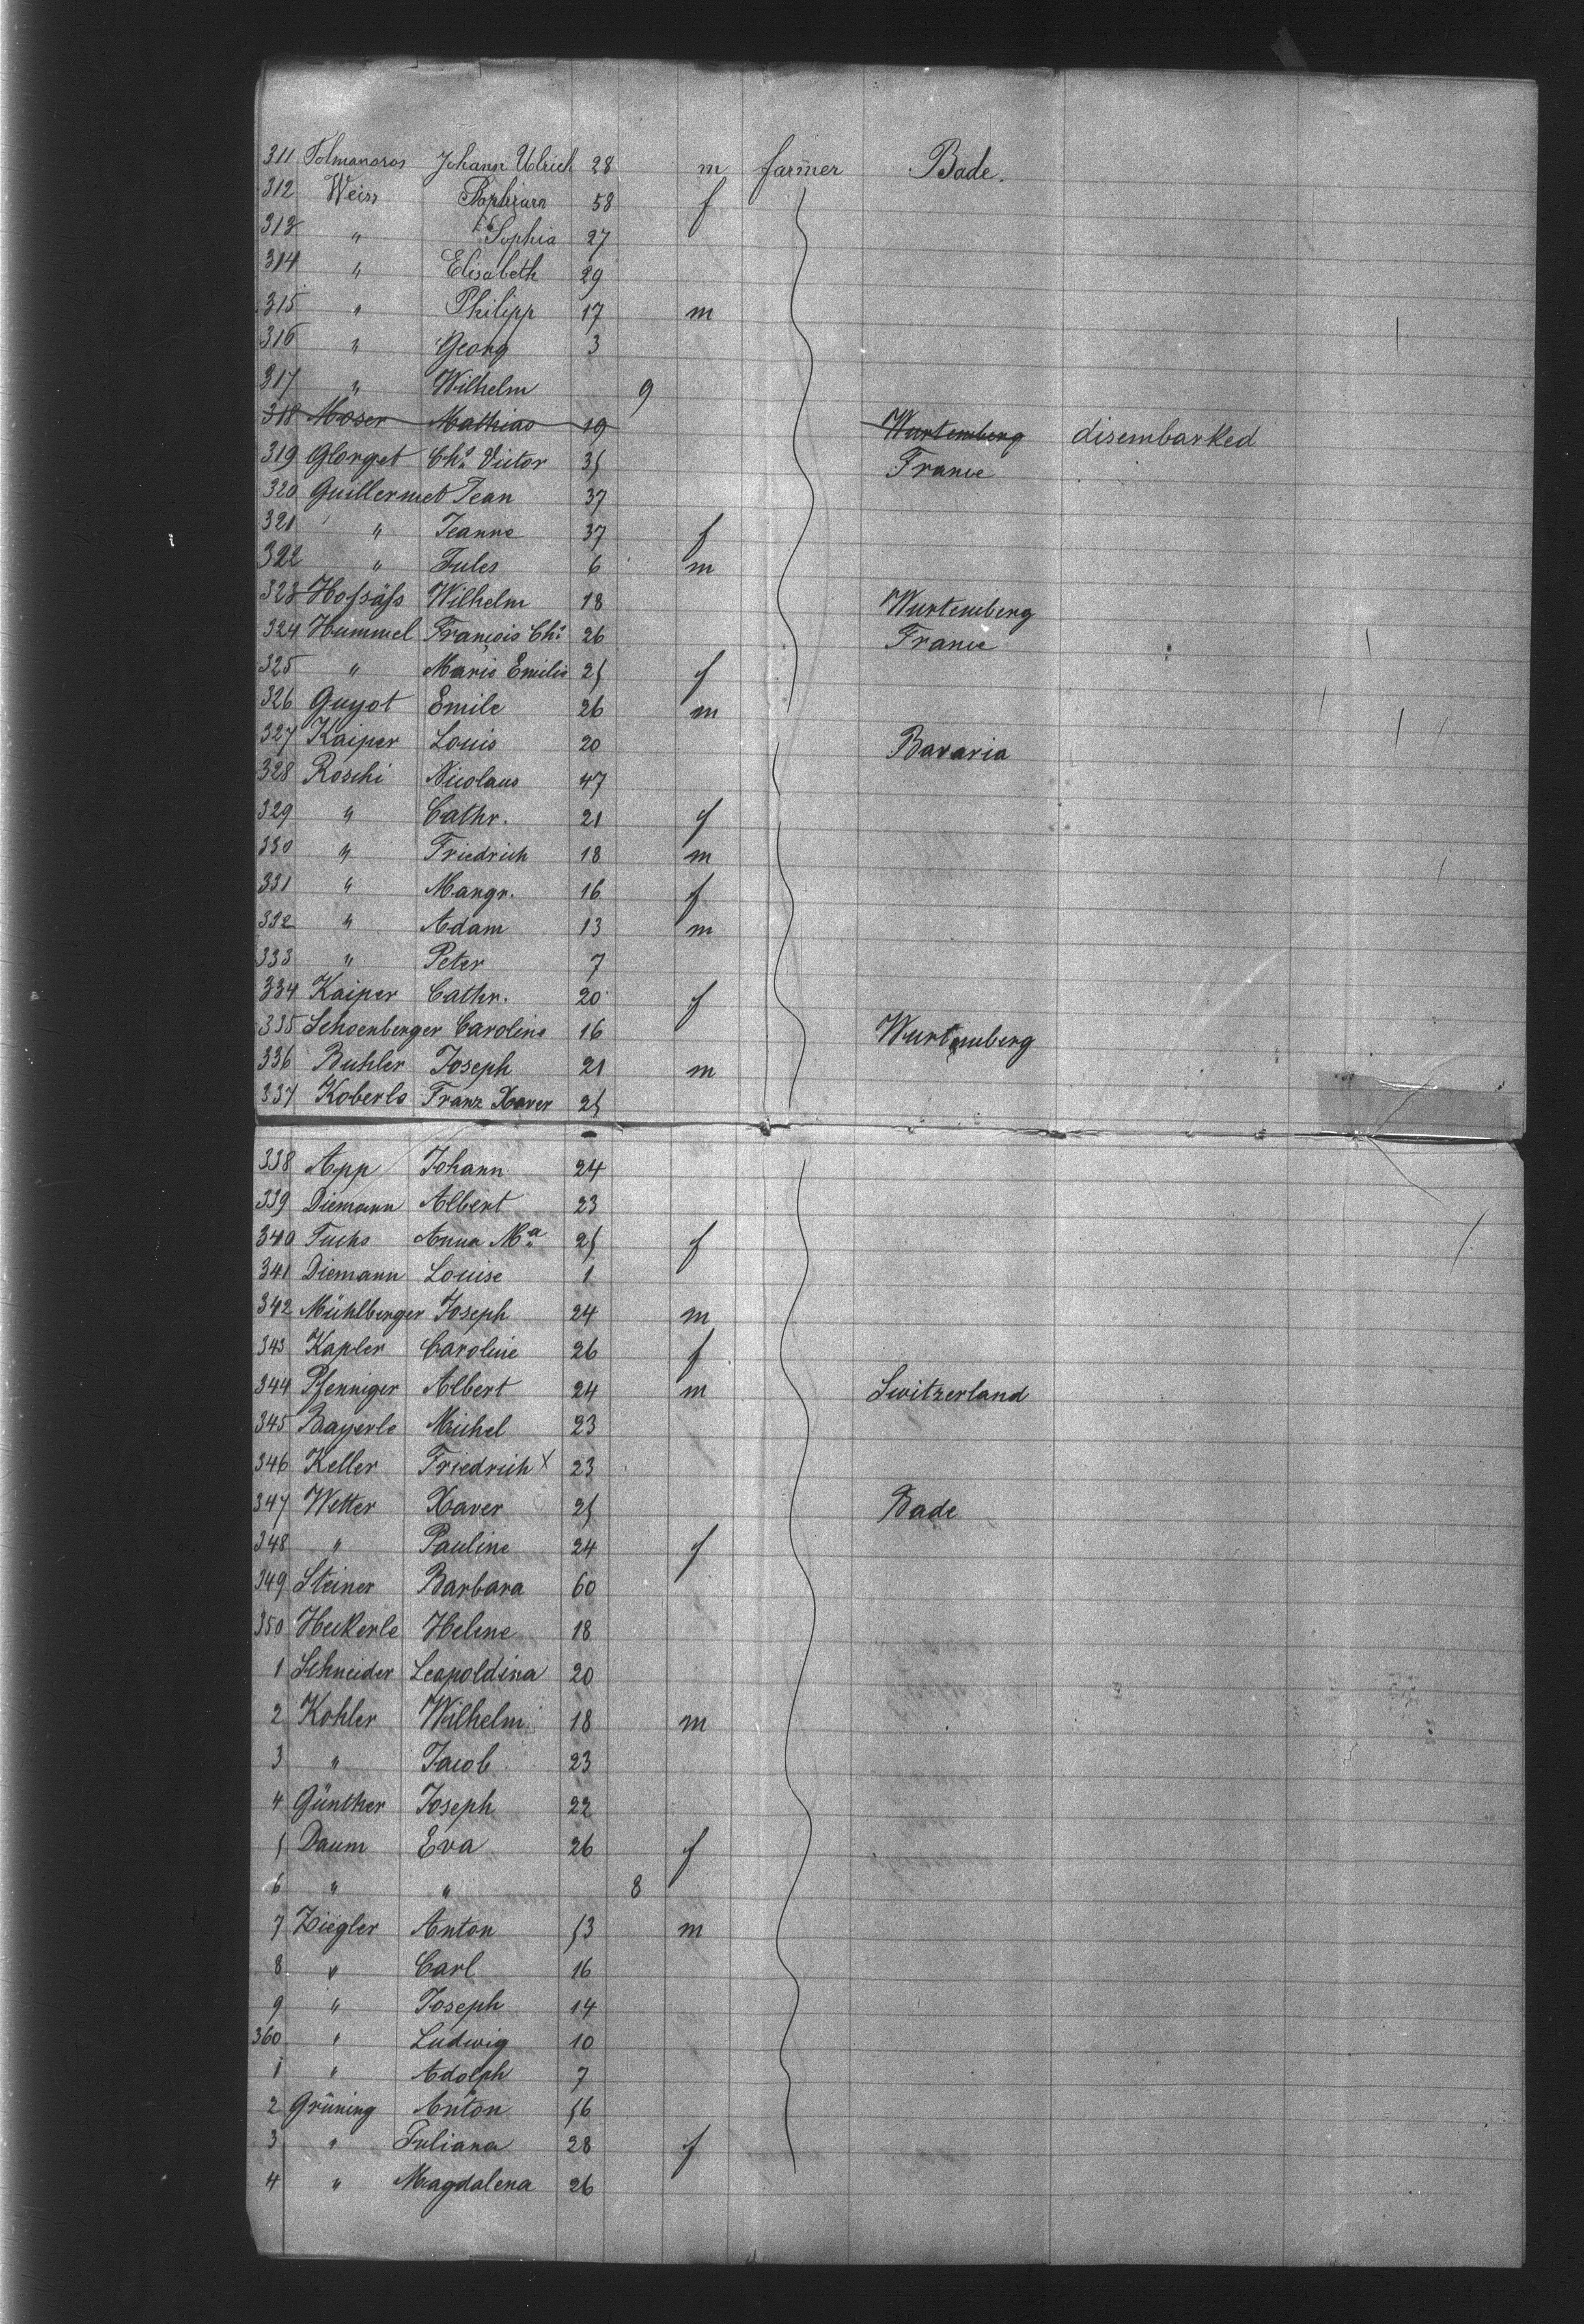 311 Johann Ulrich 28 m farmer Bade.
312 Weiss 58 f
313 " Sophia 27
314 " Elisabeth 29
315 " Philipp 17 m
316 " Georg 3
317 " Wilhelm 9
318 Moser Mathias 19 Wurtemberg disembarked
319 Glorget Chs Victor 35 France
320 Guillermet Jean 37
321 " Jeanne 37 f
322 " Jules 6 m
323 Hofsäfs Wilhelm 18 Wurtemberg
324 Hummel François Chs 26 France
325 " Marie Emilie 25 f
326 Guyot Emile 26 m
327 Kaiper Louis 20 Bavaria
328 Roschi Nicolaus 47
329 " Cathr. 21 f
330 " Friedrich 18 m
331 " Margr. 16 f
332 " Adam 13 m
333 " Peter 7
334 Kaiper Cathr. 20 f
335 Schoenberger Caroline 16 Wurtemberg
336 Buhler Joseph 21 m
337 Koberle Franz Xaver 25
338 App Johann 24
339 Diemann Albert 23
340 Fuchs Anna Ma 25 f
341 Diemann Louise 1
342 Mühlberger Joseph 24 m
343 Kapler Caroline 26 f
344 Pfenniger Albert 24 m Switzerland
345 Bayerle Michel 23
346 Keller Friedrich X 23
347 Wetter Xaver 25 Bade
348 " Pauline 24 f
349 Steiner Barbara 60
350 Heckerle Helene 18
1 Schneider Leopoldina 20
2 Kohler Wilhelm 18 m
3 " Jacob 23
4 Günther Joseph 22
5 Daum Eva 26 f
6 " " 8
7 Ziegler Anton 53 m
8 " Carl 16
9 " Joseph 14
360 " Ludwig 10
1 " Adolph 7
2 Grüning Anton 56
3 " Juliana 28 f
4 " Magdalena 26